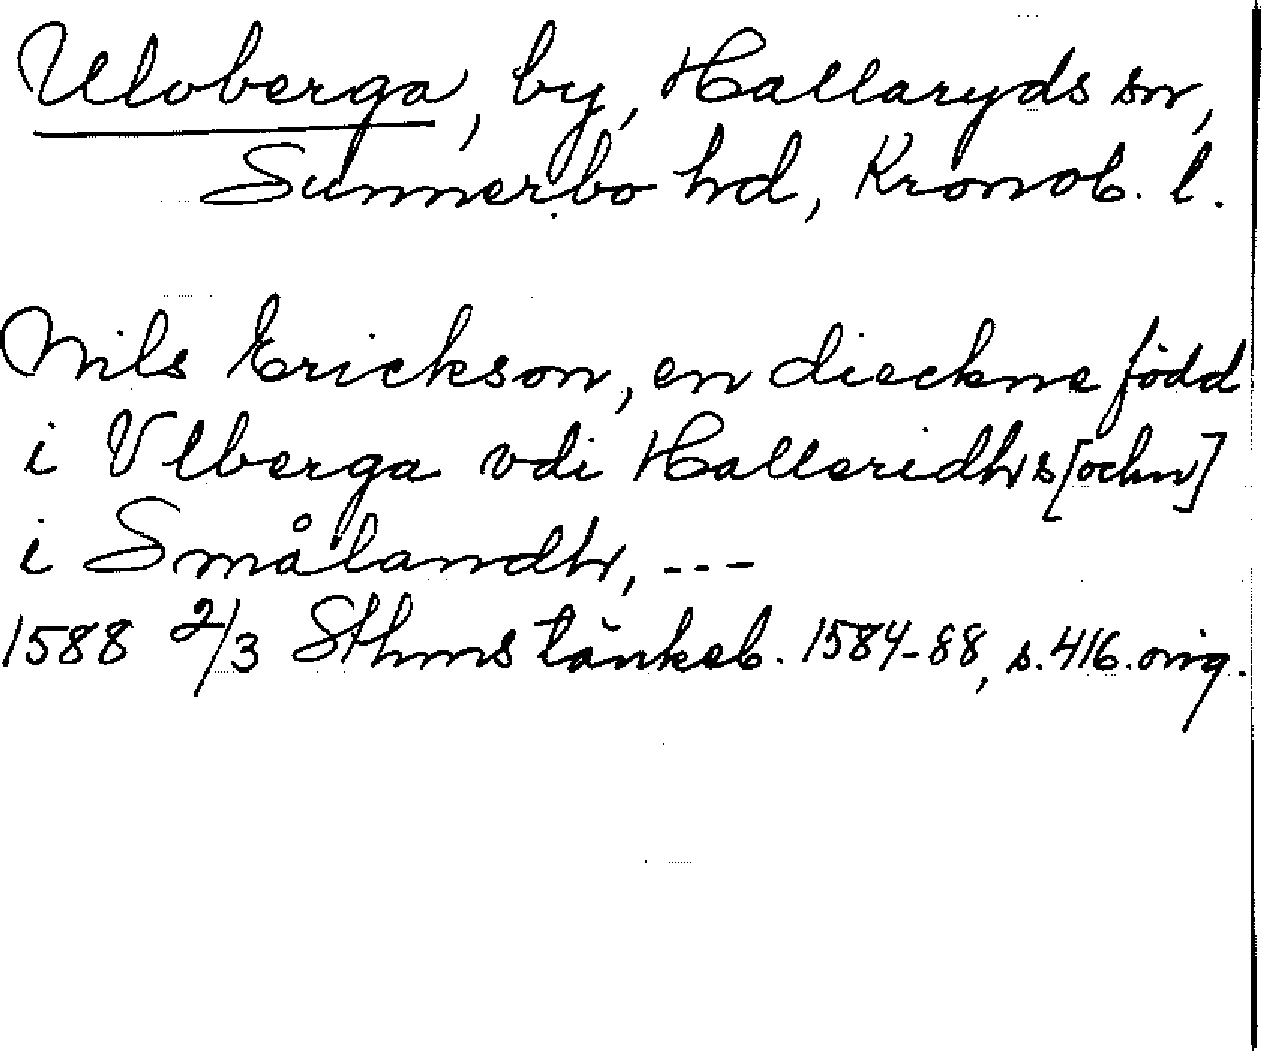 Ulvberga, by, Hallaryds sn,
Sunnerbo hd, Kronob. l.
Nils Erickson, en dieckne född
i Vlberga vdi Halleridh s[ochn]
i Smålandh, ---
1588 2/3 Sthms tänkeb. 1584-88, s. 416. orig.